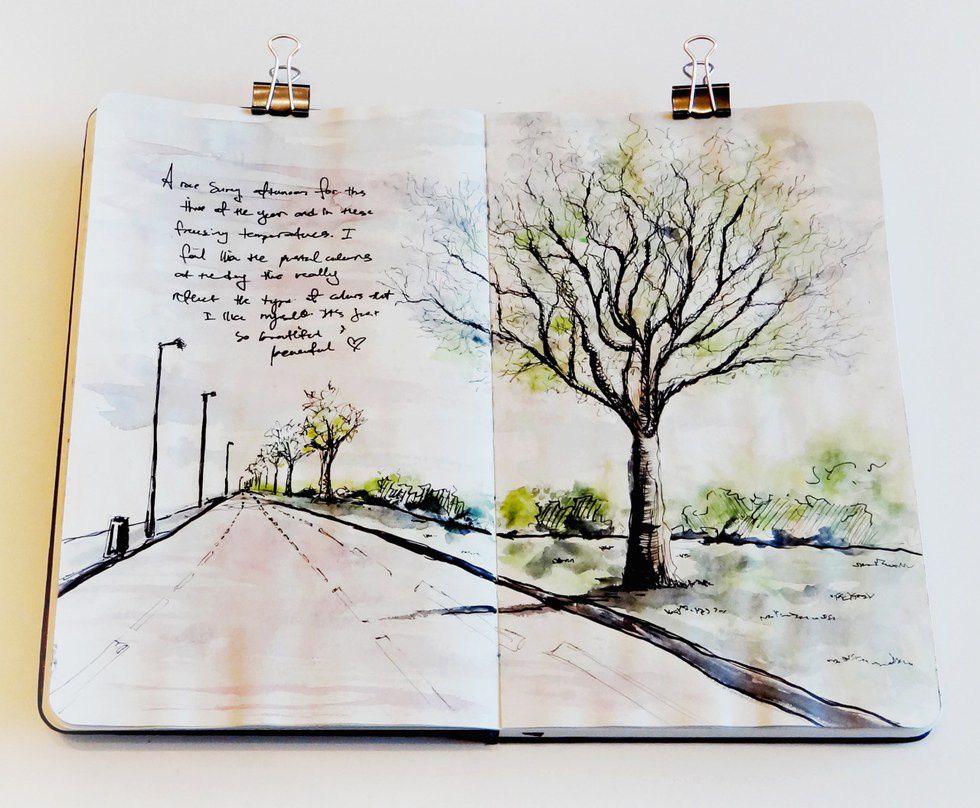 A nice Sunny afternoon for this
time of the year and in these
freezing temperatures. I
feel like the pastel colours
at the day this really
reflect the type of colours that
I like myself. It's just
so beautiful &
peaceful ♡